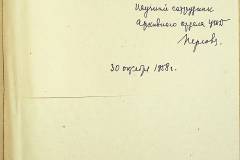 Научный сотрудник
Архивного отдела УВД
Перлов.
30 октября 1958 г.